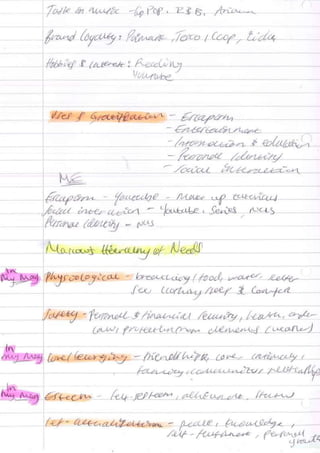 Taste in music - POP, R&B, Ariana
Brand Loyalty: Primark, Tesco, Coop, Lidl
Hobbies & Interest: Reading
Youtube
Uses & Gratification - Escapism
- Entertainment
- Information & education
- Personal Identity
- Social Interaction
ME
Escapism - Youtube - Make up tutorials
Social interaction - Youtube, Series,
Personal Identity -
Maslows Hierarchy of Needs
In My Mag Physiological - breathing, food, water, shelter
sex clothing sleep & comfort
Safety - Personal & Financial Security, health, order
law, protection from elements
In My Mag Love/belonging - friendships, love, intimacy,
family, communities, relationship
In My Mag Esteem - self-esteem,
Self-actualization - peace, knowledge,
self-fulfilment, personal
growth